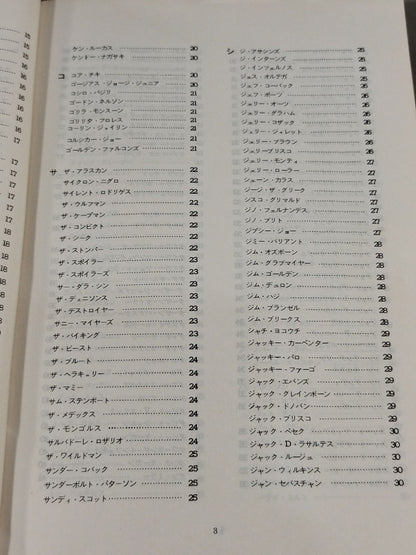 15
15
16
16
16
16
17
17
17
17
18
18
18
18
18
18
18
ケン・ルーカス 20
ケンドー・ナガサキ 20
コ コア・チキ 20
ゴージアス・ジョージ・ジュニア 20
コシロ・バジリ 21
ゴードン・ネルソン 21
ゴリラ・モンスーン 21
ゴリリタ・フロレス 21
コーリン・ジョイリン 21
コルシカー・ジョー 21
ゴールデン・ファルコンズ 21
サ ザ・アラスカン 22
サイクロン・ニグロ 22
サイレント・ロドリゲス 22
ザ・ウルフマン 22
ザ・ケープマン 22
ザ・コンビクト 22
ザ・シーク 22
ザ・ストンパー 22
ザ・スポイラー 23
ザ・スポイラーズ 23
サー・ダラ・シン 23
ザ・デニソンス 23
ザ・デストロイヤー 23
サニー・マイヤーズ 23
ザ・バイキング 23
ザ・ビースト 24
ザ・ブルート 24
ザ・ヘラキュリー 24
ザ・マミー 24
サム・ステンボート 24
ザ・メデックス 24
ザ・モンゴルス 24
サルバドーレ・ロザリオ 24
ザ・ワイルドマン 25
サンダー・コバック 25
サンダーボルト・パターソン 25
サンディ・スコット 25
シ ジ・アサシンズ 25
ジ・インターンズ 25
ジ・インフェルノス 25
ジェス・オルテガ 26
ジェフ・コーバック 26
ジェフ・ポーツ 26
ジェリー・オーツ 26
ジェリー・グラハム 26
ジェリー・コザック 26
ジェリー・ジャレット 26
ジェリー・ブラウン 26
ジェリーブリスコ 26
ジェリー・モンティ 27
ジェリー・ローラー 27
シェーン・カラス 27
ジージ・ザ・グリーク 27
シスコ・グリマルド 27
ジノ・フェルナンデス 27
ジノ・ブリト 27
ジプシー・ジョー 27
ジミー・バリアント 27
ジム・オズボーン 28
ジム・グラブマイヤー 28
ジム・ゴールデン 28
ジム・デュロン 28
ジム・ハジ 28
ジム・ブランゼル 28
ジム・ブリークス 28
シャチ・ヨコウチ 28
ジャッキー・カーペンター 29
ジャッキー・パロ 29
ジャッキー・ファーゴ 29
ジャック・エバンズ 29
ジャック・クレインボーン 29
ジャック・ドノバン 29
ジャック・ブリスコ 29
ジャック・ベセク 30
ジャック・D・ラサルテス 30
ジャック・ルージュ 30
ジャン・ウィルキンス 30
ジャン・セバスチャン 30
3